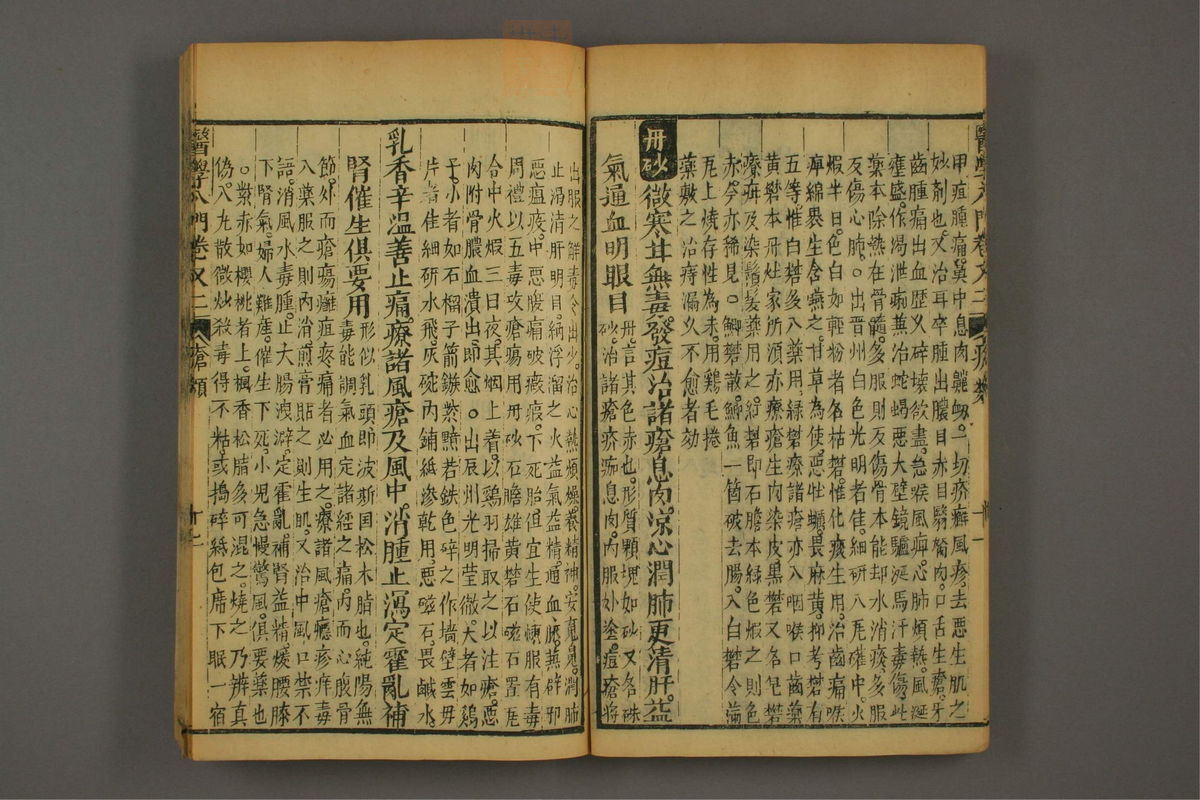 甲疽腫痛鼻中息肉鼽衂一切疥癬風疹去惡生肌之
妙劑也又治耳卒腫出膿目赤目翳胬肉口舌生瘡牙
齒腫痛出血歷久碎壞欲盡急喉風痺心肺煩熱風涎
壅盛作渴泄痢兼治蛇蝎惡犬壁鏡驢涎馬汗毒傷此
藥本除熱在骨髓多服則反傷骨本能却水消痰多服
反傷心肺○出晉州白色光明者佳細研入瓦確中火
煆半日色白如輕粉者名枯礬惟化痰生用治齒痛喉
痺綿裹生含嚥之甘草為使惡牡蠣畏麻黃抑考礬有
五等惟白礬多入藥用綠礬療諸瘡亦入咽喉口齒藥
黃礬本丹灶家所須亦療瘡生肉染皮黑礬又名皂礬
療疳及染鬚髮藥用之絳礬即石膽本綠色煆之則色
赤今亦稀見○鯽礬散鯽魚一箇破去腸入白礬令滿
瓦上燒存性為末用鷄毛捲
藥敷之治痔漏久不愈者効
丹砂 微寒甘無毒發痘治諸瘡息肉涼心潤肺更清肝益
氣通血明眼目
丹言其色赤也形質顆塊如砂又名硃
砂治諸瘡疥痂息肉內服外塗痘瘡將
出服之解毒令出少治心熱煩燥養精神安魂魄潤肺
止渴清肝明目納浮溜之火益氣益精通血脉兼辟邪
惡瘟疫中惡腹痛破癥瘕下死胎但宜生使煉服有毒
周禮以五毒攻瘡瘍用丹砂石膽雄黃礬石磁石置瓦
合中火煆三日夜其烟上着以鷄羽掃取之以注瘡惡
肉附骨膿血潰出即愈○出辰州光明瑩徹大者如鷄
子小者如石榴子箭鏃紫黯若鉄色碎之作墻壁雲母
片者佳細研水飛灰碗內鋪紙滲乾用惡磁石畏鹹水
乳香辛溫善止痛療諸風瘡及風中消腫止瀉定霍亂補
腎催生俱要用
形似乳頭即波斯国松木脂也純陽無
毒能調氣血定諸經之痛內而心腹骨
節外而瘡瘍癰疽疼痛者必用之療諸風瘡癮疹痒毒
入藥服之則內消煎膏貼之則生肌又治中風口禁不
語消風水毒腫止大腸洩澼定霍亂補腎益精煖腰膝
下腎氣婦人難產催生下死小兒急慢驚風俱要藥也
○紫赤如櫻桃者上楓香松脂多可混之燒之乃辨真
偽入丸散微炒殺毒得不粘或搗碎紙包席下眠一宿